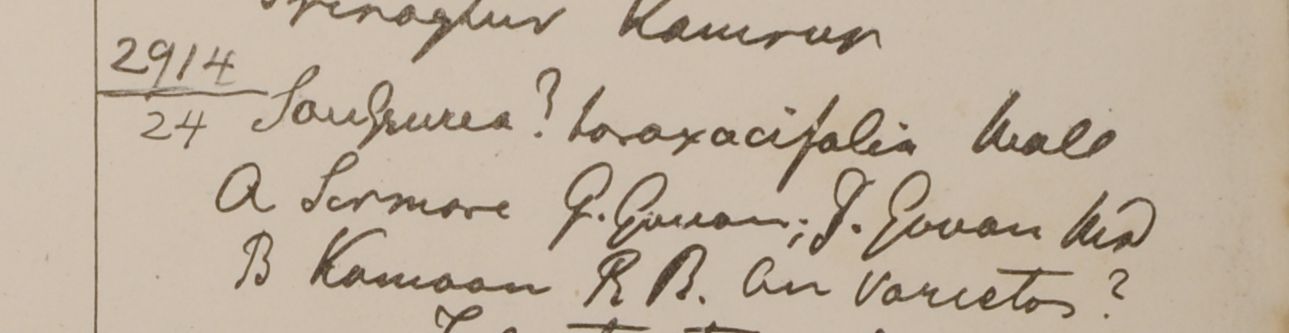 Kamrup
2914
24 Saussurea? taraxacifolia Wall
A Sirmore G. Govan; J. Govan
B Kamaon R B. an varietas?